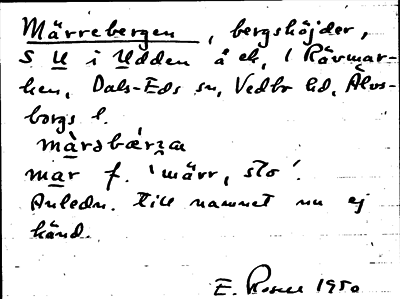 Märrebergen, bergshöjder,
S U i Udden å ek, l Rävmar-
ken, Dals-Eds sn, Vedbo hd, Älvs-
borgs l.
mar f. 'märr, sto'.
Anledn. till namnet nu ej
känd.
E. Rosell 1950